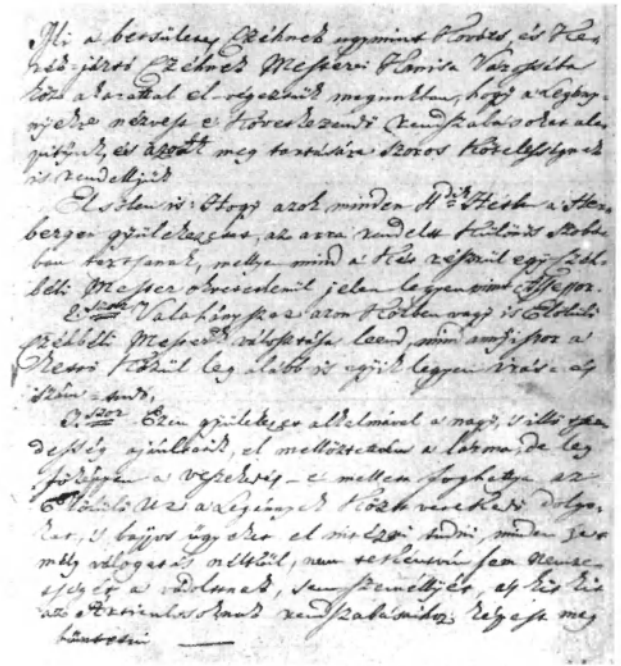 Mi a betsületes Czéhnek ugymint Kováts, és Ke-
rék-jártó Czéhnek Mesterei Kanisa Várossába
köz akarattal el-végeztük magunkban, hogy a Legény-
nyekre nézvést e következendő rendszabásokat ala-
pitjuk, és azokat meg tartására szoros kötelességnek
is rendelljük
Elsőben is: Hogy azok minden 4dik Héten a Her-
bergen gyülekezzenek, az arra rendelt külömös szobá-
ban tartsanak, mellyen mind a két részrül egy czéh-
béli Mester okvetetlenül jelen legyen mint Assessor.
2.szor Valahányszor azon Körben vagy is Elöljáró
czéhbéli Mesterek választása leend, mind annyiszor a
kettő közül leg alább is egyik legyen irás- és
szám-tudó.
3.szor Ezen gyülekezet alkalmával a nagy, s illő
desség ajánltatik, el mellőztetvén a lárma, de leg
főképpen a veszekedés - e mellett foghattya az
Úr a Legények közt dolgo-
kat, s bajjos ügyeket el intézni tudni, minden sze-
mély válogatás nélkül, nem tekéntvén sem nemze-
tségét a vádoltnak, sem személlyét, és kit kit
az Articulusoknak rendszabásaihoz képest meg
büntetni